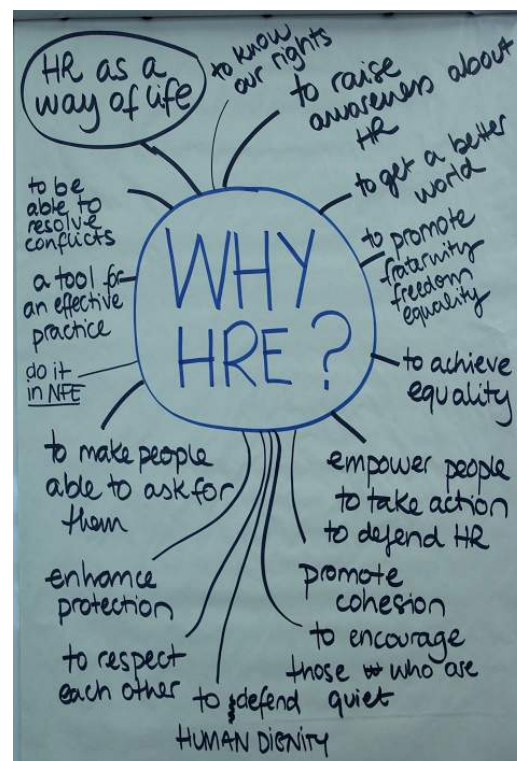 HR as a
way of life
to know
our rights
to raise
awareness about
HR
to get a better
world
to promote
fraturnity
freedom
equality
to achieve
equality
empower people
to take action
to defend HR
promote
cohesion
to encourage
those who are
quiet
to defend
HUMAN DIGNITY
to respect
each other
enhance
protection
to make people
able to ask for
them
do it
in NFE
a tool for
an effective
practice
to be
able to
resolve
conflicts
WHY
HRE?